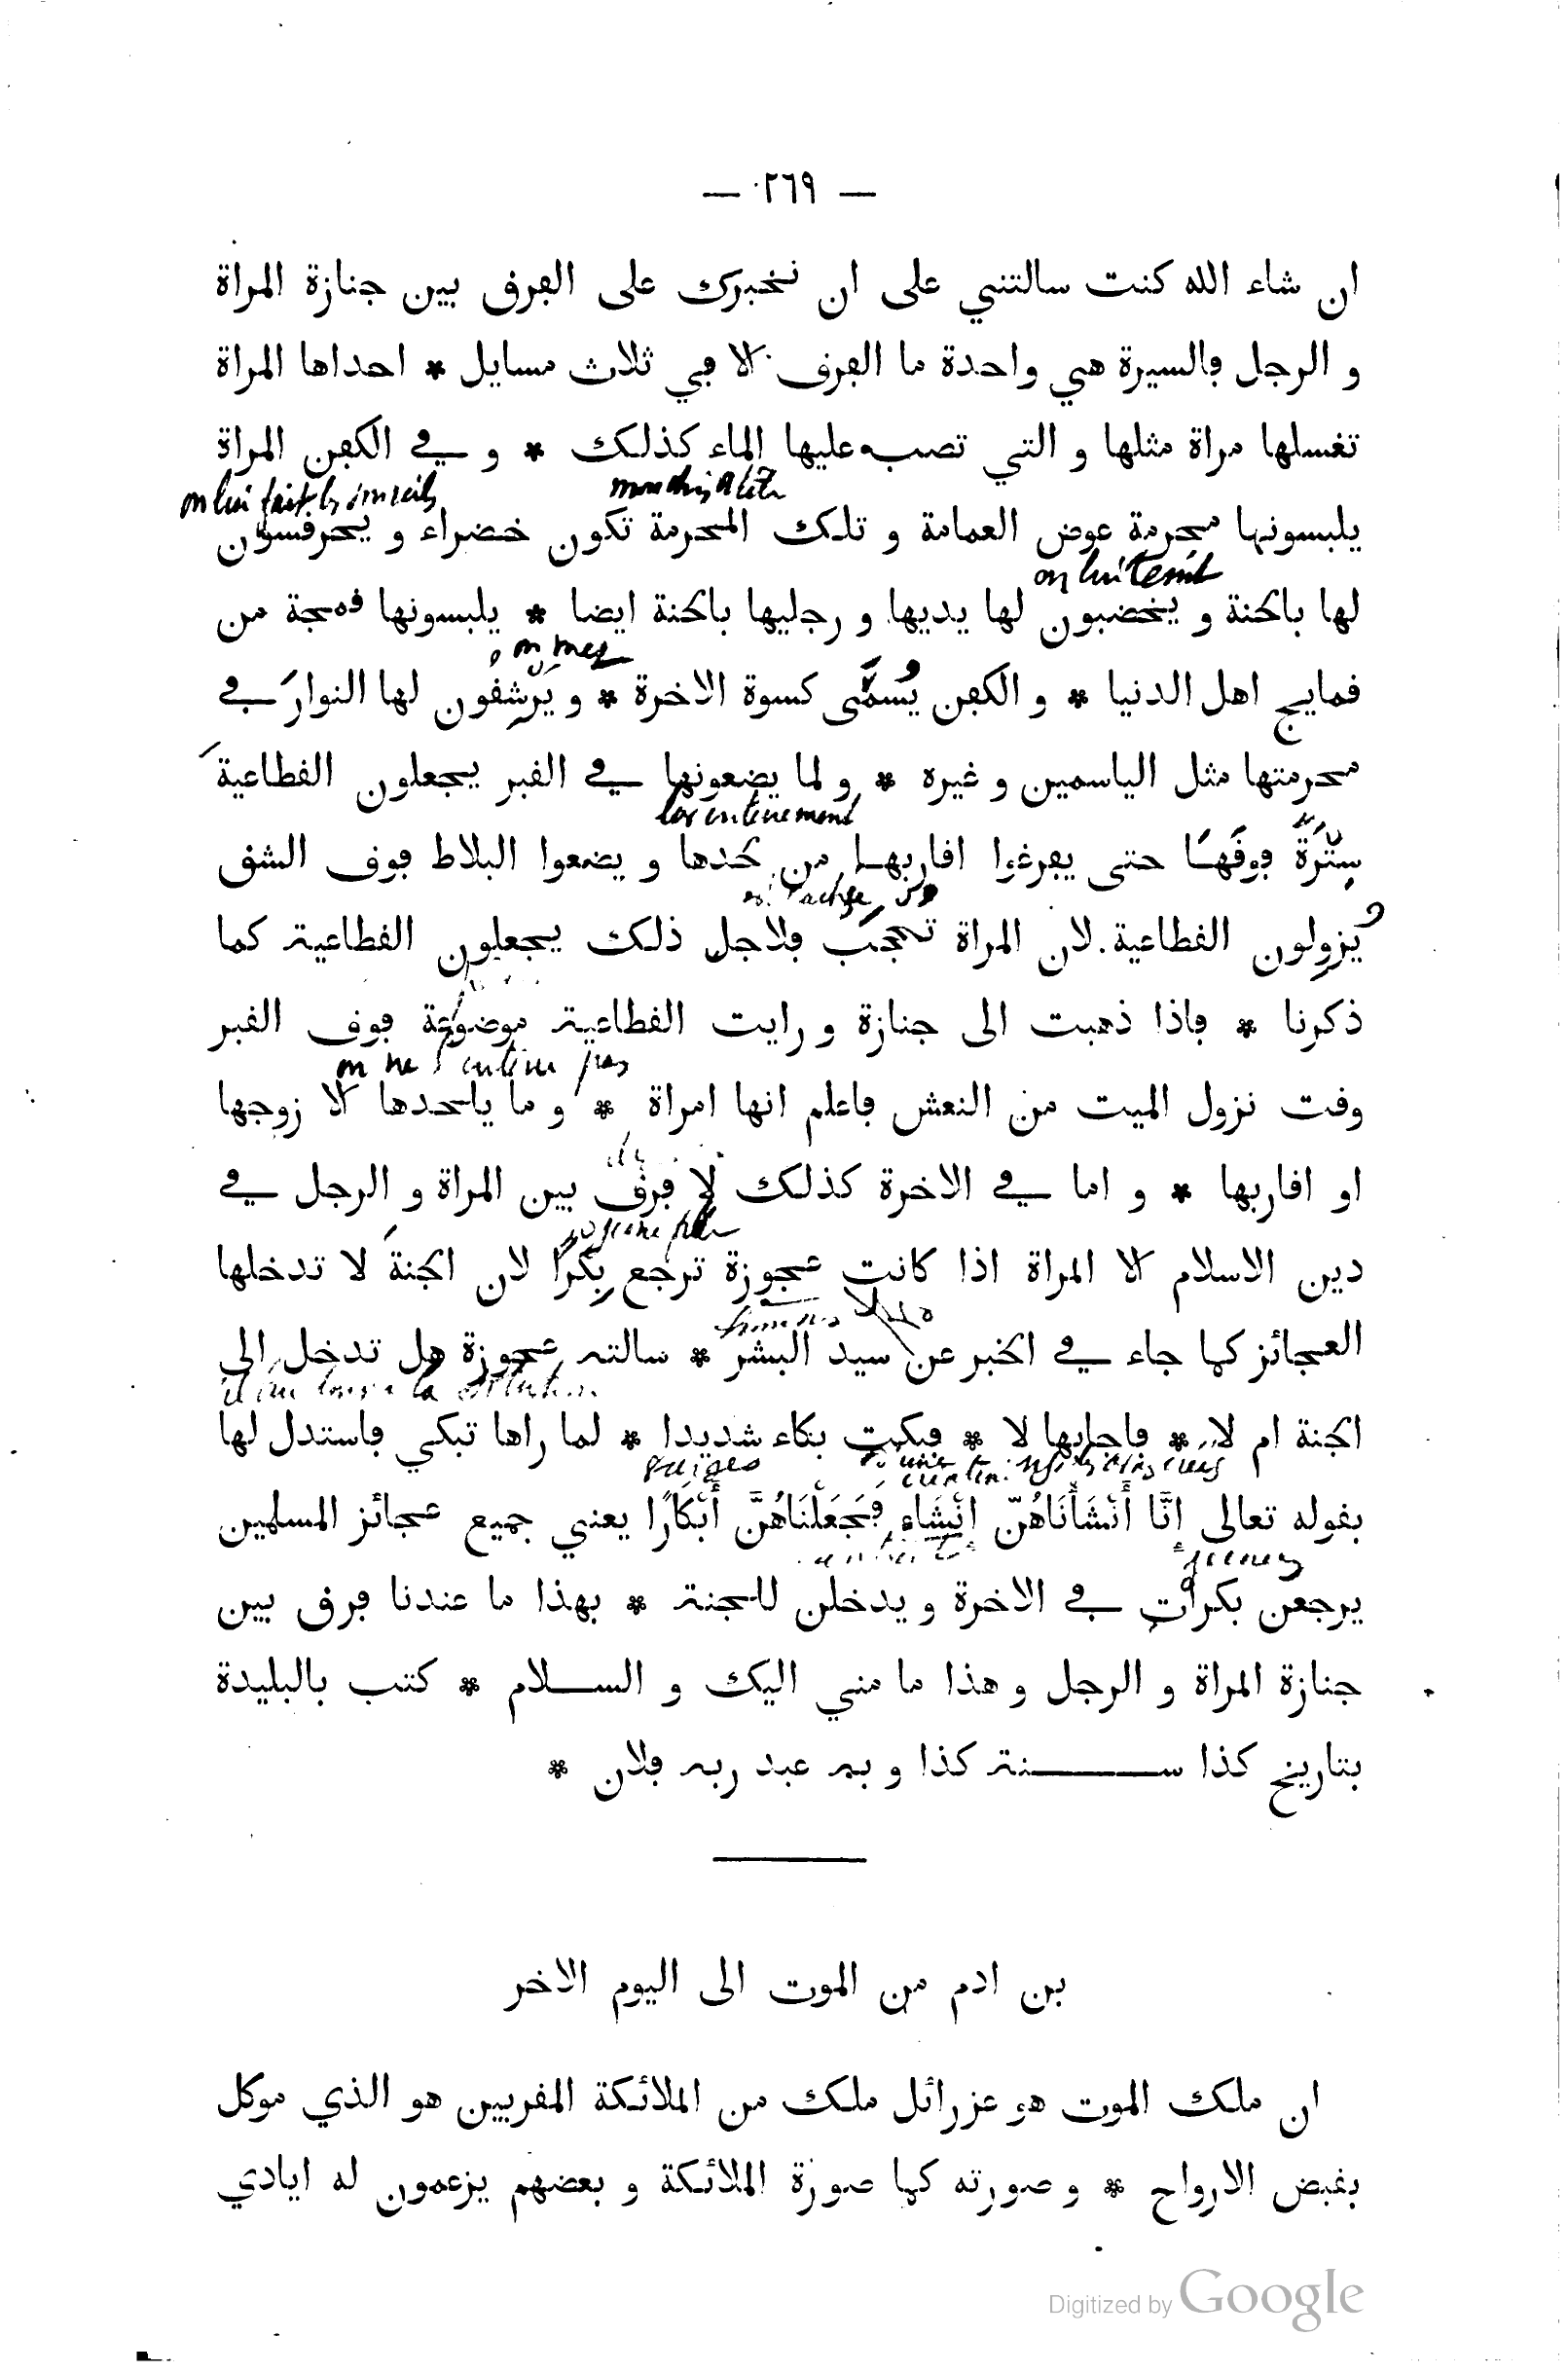 — ٢٦٩ —
ان شاء الله كنت سالتني على ان نخبرك على الفرق بين جنازة المراة
و الرجل فالسيرة هي واحدة ما الفرق الا في ثلاث مسايل * احداها المراة
تغسلها مراة مثلها و التي تصب عليها الماء كذلك * و في الكفن المراة
on lui fait les sourcils
يلبسونها محرمة عوض العمامة و تلك المحرمة تكون خضراء و يحرقسون
on lui teint
لها بالحنة و يخضبون لها يديها و رجليها بالحنة ايضا * يلبسونها قمجة من
on met
قمايج اهل الدنيا * و الكفن يُسمَّى كسوة الاخرة * و يَرشِقُون لها النوار في
محرمتها مثل الياسمين و غيره * و لما يضعونها في القبر يجعلون القطاعية
enterrement
سِتْرَة فوقَهَا حتى يفرغوا اقاربها من لحدها و يضعوا البلاط فوق الشق
يُزولون القطاعية. لان المراة تحجب فلاجل ذلك يجعلون القطاعية كما
ذكرنا * فاذا ذهبت الى جنازة و رايت القطاعية موضوعة فوق القبر
on ne l'enterre pas
وقت نزول الميت من النعش فاعلم انها امراة * و ما يلحدها الا زوجها
او اقاربها * و اما في الاخرة كذلك لا فرق بين المراة و الرجل في
دين الاسلام الا المراة اذا كانت عجوزة ترجع بِكرًا لان الجنة لا تدخلها
العجائز كما جاء في الخبر عن سيد البشر * سالته عجوزة هل تدخل الى
الجنة ام لا * فاجابها لا * فبكت بكاء شديدا * لما راها تبكي فاستدل لها
vierges
بقوله تعالى إِنَّا أَنْشَأْنَاهُنّ إِنْشَاءً فَجَعَلْنَاهُنَّ أَبْكَارًا يعني جميع عجائز المسلمين
jeunes
يرجعن بكرات في الاخرة و يدخلن للجنة * بهذا ما عندنا فرق بين
جنازة المراة و الرجل و هذا ما مني اليك و الســلام * كتب بالبليدة
بتاريخ كذا ســـنة كذا و به عبد ربه فلان *
بن ادم من الموت الى اليوم الاخر
ان ملك الموت هو عزرائل ملك من الملائكة المقربين هو الذي موكل
بقبض الارواح * و صورته كما صورة الملائكة و بعضهم يزعمون له ايادي
Digitized by Google